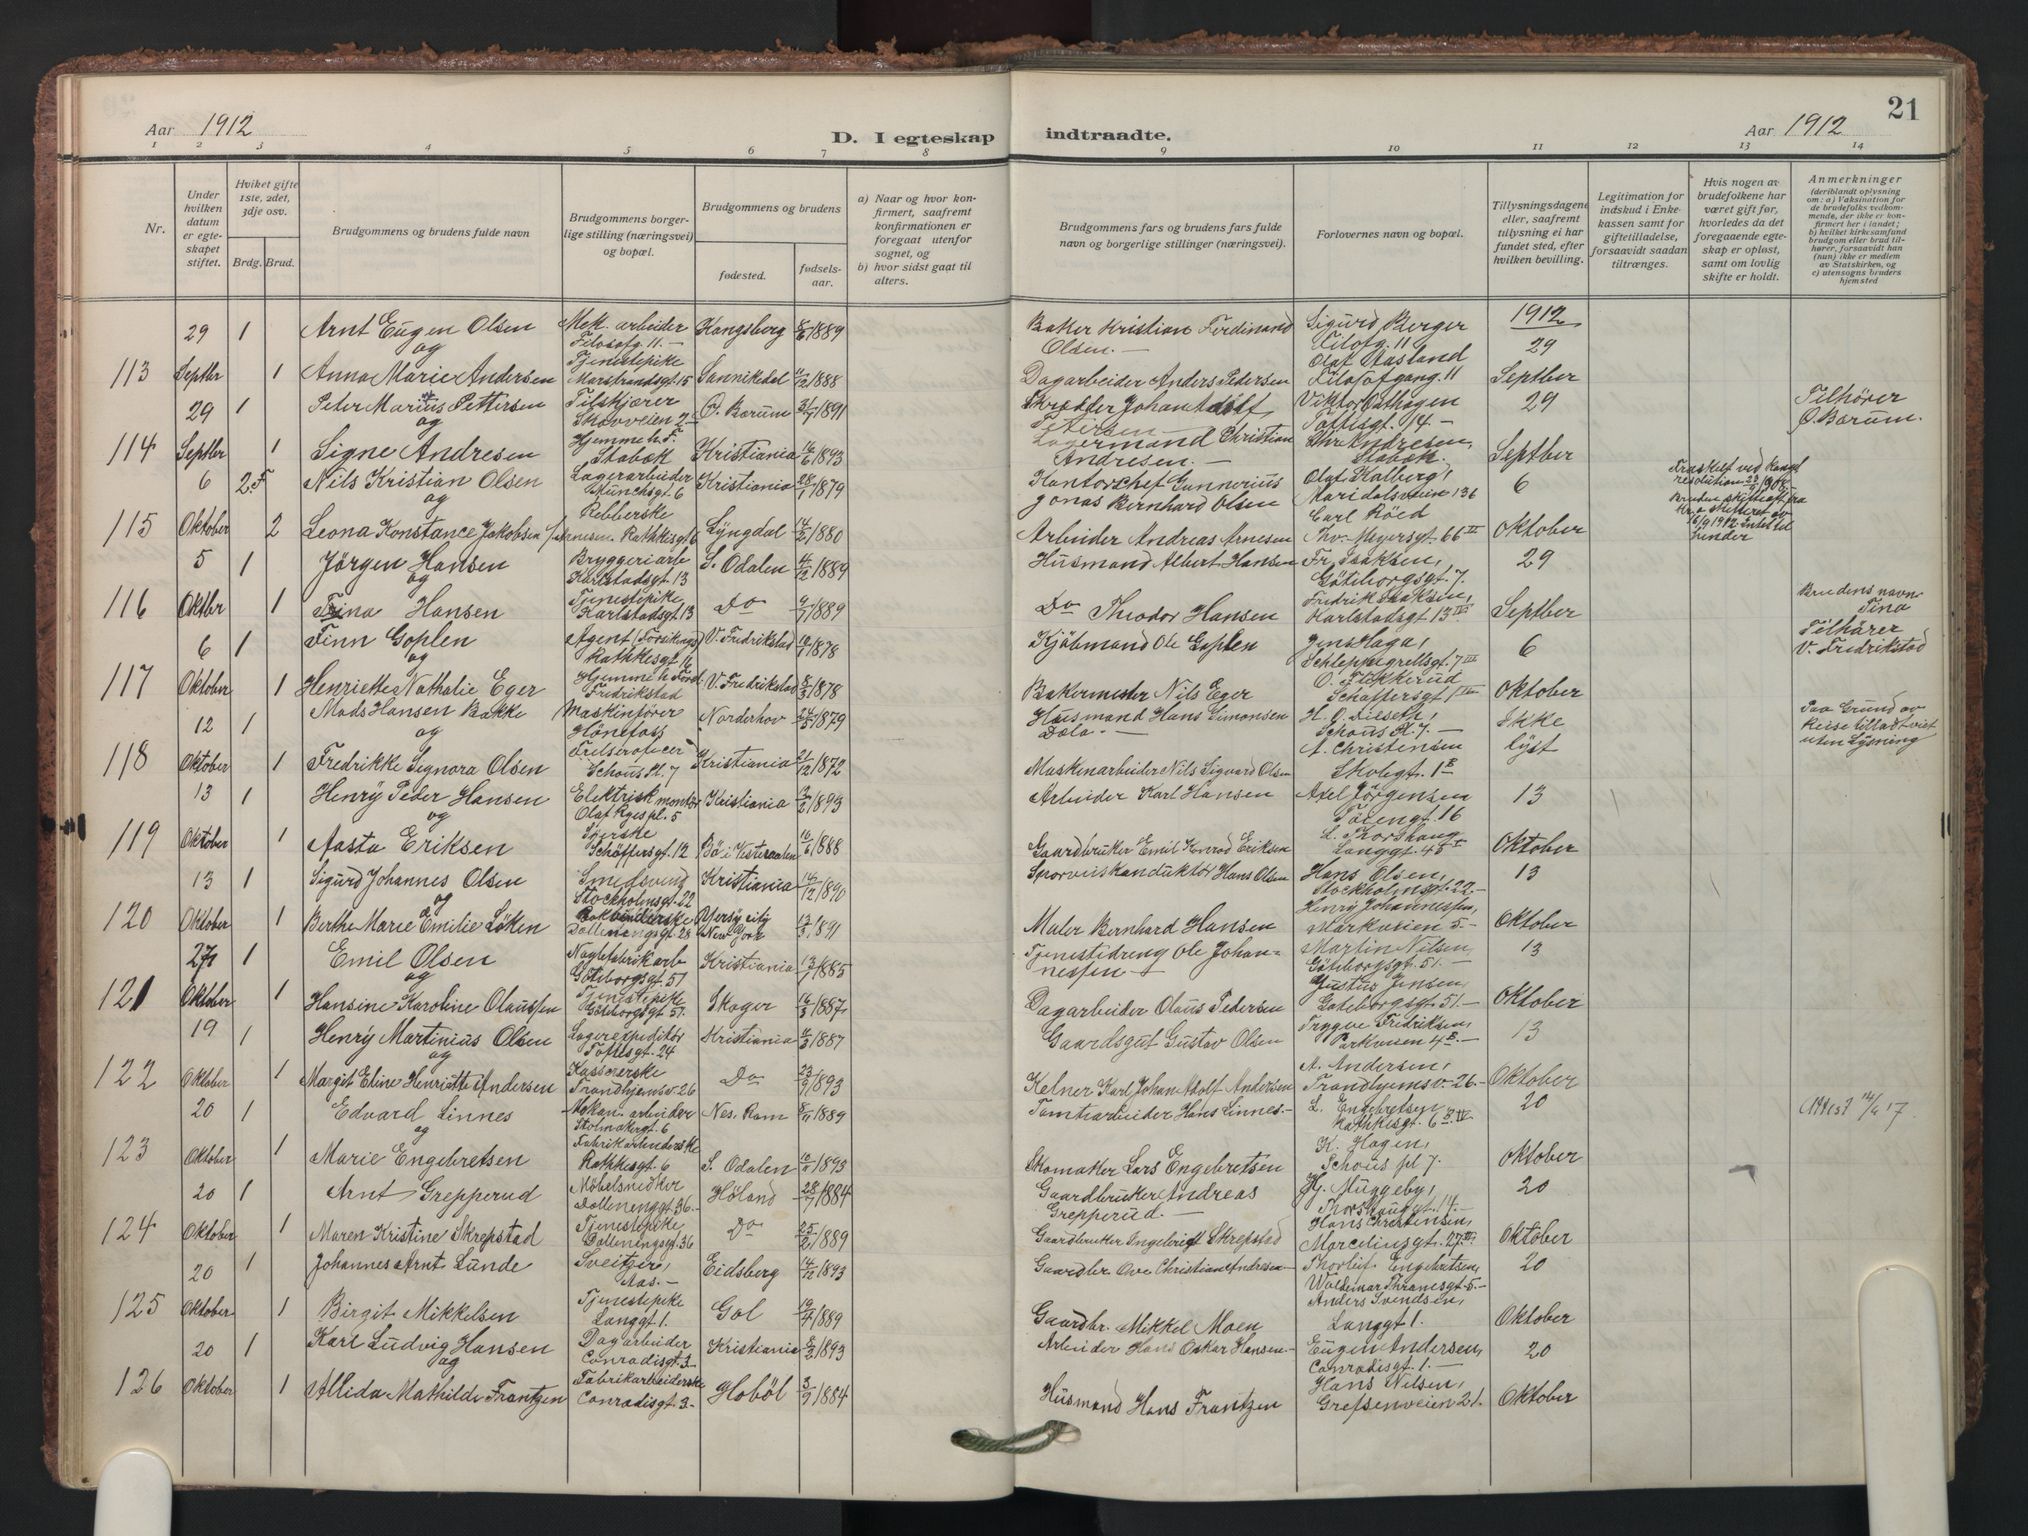 21
Aar 1912
D. I egteskap indtraadte.
Aar 1912
1 2 3 4 5 6 7 8 9 10 11 12 13 14
Nr.
Under hvilken datum er egteskapet stiftet.
Hviket gifte 1ste, 2det, 3dje osv.
Brdg. Brud.
Brudgommens og brudens fulde navn
Brudgommens borgerlige stilling (næringsvei) og bopæl.
Brudgommens og brudens
fødested.
fødselsaar.
a) Naar og hvor konfirmert, saafremt konfirmationen er foregaat utenfor sognet, og
b) hvor sidst gaat til alters.
Brudgommens fars og brudens fars fulde navn og borgerlige stillinger (næringsvei).
Forlovernes navn og bopæl.
Tillysningsdagene eller, saafremt tillysning ei har fundet sted, efter hvilken bevilling.
Legitimation for indskud i Enkekassen samt for giftetilladelse, forsaavidt saadan tiltrænges.
Hvis nogen av brudefolkene har været gift før, hvorledes da det foregaaende egteskap er opløst, samt om lovlig skifte er holdt.
Anmerkninger (deriblandt oplysning om: a) Vaksination for de brudefolks vedkommende, der ikke er konfirmert her i landet; b) hvilket kirkesamfund brudgom eller brud tilhører, forsaavidt han (hun) ikke er medlem av Statskirken, og c) utensogns bruders hjemsted
29 1 Arnt Eugen Olsen Mek. arbeider Filosofg. 11.- Kongsberg 8/6 1889 Baker Kristian Ferdinand Olsen.- Sigurd Berger Filofg. 11 1912 29
og
113 Septbr 1 Anna Marie Andersen Tjenestepike Marstrandsgt. 15 Sannikedal 11/12 1888 Dagarbeider Anders Pedersen Olaf Aasland Filosofgang. 11 Septber
29 1 Peter Marius Pettersen Ø. Bærum 31/7 1891 Skrædder Johan Adolf Petersen Viktor Toftisgt. 1/4 - 29 Tilhører Ø. Bærum.
og
114 Septbr 1 Signe Andresen Hjemme h. F. Stabæk Kristiania 16/6 1893 Lagermand Christian Andresen.- Chr. Andresen, Stabæk. Septber
6 2. F Nils Kristian Olsen Lagerarbeider Munchsgt. 6 Kristiania 28/1 1879 Kontorchef Gunnerius Jonas Bernhard Olsen Olaf Kalberg, Maridalsveien 136 6 Fraskilt ved Kongl resolution
og
115 Oktober 2 Leona Konstance Jakobsen Rathkisgt 6 Lyngdal 14/2 1880 Arbeider Andreas Arnesen Carl Röed Thv. Meyersgt. 66 III Oktober
5 1 Jörgen Hansen Bryggeriarb Karlstadsgt. 13 S. Odalen 4/12 1889 Husmand Albert Hansen Fr. Isaksen, Göteborgsgt. 7. 29
og
116 Oktbr 1 Trina Hansen Tjenestepike Karlstadsgt. 13 Do 9/7 1889 Do Theodor Hansen Fredrik Isaksen, Karlstadsgt. 13 IV Septber Brudens navn Tina
6 1 Finn Goplen Agent (Forsikings) Rathkesgt 16 V. Fredrikstad 1878 Kjöbmand Ole Goplen Jens Haga, Schleppegrellsgt. 7 III 6 Tilhører V. Fredrikstad
og
117 Oktober 1 Henriette Nathalie Eger Hjemme h. Ford. Fredrikstad V. Fredrikstad 8/3 1878 Bakermester Nils Eger O. Fikkerud Schäffersgt 1 Oktober
12 1 Mads Hansen Bakke Maskinfører Hönefoss Norderhov 24/3 1879 Husmand Hans Simonsen Dæla.- Schous Pl. 7.- Ikke Paa Grund av Reise tilladt viet uten Lysning
og
118 Oktober 1 Fredrikke Signora Olsen Schous Pl. 7 Kristiania 21/12 1872 Maskinarbeider Nils Sigvard Olsen A. Christensen Skolegt. 1 B lyst
13 1 Henry Peder Hansen Elektrisk montör Olaf Ryes pl. 5 Kristiania 1893 Arbeider Karl Hansen Axel Jörgensen Töiengt. 16 13
og
119 Oktober 1 Aasta Eriksen Syerske Schöffersgt. 12 Bö i Vesteraalen 10/6 1888 Gaardbruker Emil Konrad Eriksen L. Thorshaug Langgt. 45 I Oktober
13 1 Sigurd Johannes Olsen Smedsvend Stockholmsgt. 22 Kristiania 14/12 1890 Sporveiskonduktör Hans Olsen Hans Olsen, Stockholmsgt. 22.- 13
og
120 Oktober 1 Berthe Marie Emilie Löken Bokbinderske Dællenengsgt. 23 Yersy city New York 13/3 1891 Maler Bernhard Hansen Henry Johannessen, Markveien 5.- Oktober
27 1 Emil Olsen Naglefabrikarb Göteborgsgt. 51 Kristiania 13/1 1885 Tjenestedreng Ole Johannessen Martin Nilsen, Göteborgsgt. 51.- 13
og
121 Oktober 1 Hansine Karoline Olaussen Tjenestepike Göteborgsgt 51. Skoger 16/3 1887 Dagarbeider Olaus Pedersen Justus Jensen, Goteborgsgt. 51.- Oktober
19 1 Henry Martinius Olsen Lagerexpeditör Toftesgt. 24 Kristiania 11/3 1887 Gaardsgut Gustav Olsen Trygve Fredriksen, Parkveien 4 B.- 13
og
122 Oktober 1 Margit Eline Henriette Andersen Kassererske Trondhjemsv. 26 Do 23/9 1893 Kelner Karl Johan Adolf Andersen A. Andersen, Trondhjemsv. 26.- Oktober
20 1 Edvard Linnes Mekan. arbeider Stolmakergt. 6 Nes. Rom 8/11 1889 Tomtearbeider Hans Linnes.- L. Engebretsen Rathkesgt. 6 B IV 20
og
123 Oktober 1 Marie Engebretsen Fabrikarbeiderske Rathkesgt. 6 S. Odalen 10/11 1893 Skomaker Lars Engebretsen K. Hagen, Schous pl 7. Oktober
20 1 Arnt Grepperud Möbelsnedker Dællenenggt. 36.- Höland 28/7 1884 Gaardbruker Andreas Grepperud.- Hj. Muggeby, Thorshauggt. 14.- 20
124 Oktober 1 Maren Kristine Skrepstad Tjenestepike, Dællenengsgt. 36 Do 25/2 1889 Gaardbruker Ingebrigt Skrepstad Hans Christensen, Marcelinsgt. 27 III Oktober
20 1 Johannes Arnt Lunde Sveitser, Aas.- Eidsberg 14/12 1893 Gaardbr Ove Christian Andresen, Thorleif Engebretsen, Waldemar Thranesgt. 5.- 20
125 Oktober 1 Birgit Mikkelsen Tjenestepike Langgt 1. Gol 19/4 1889 Gaardbr. Mikkel Moen Anders Svendsen, Langgt 1. Oktober
20 1 Karl Ludvig Hansen Dagarbeider Conradisgt. 3.- Kristiania 8/2 1893 Arbeider Hans Oskar Hansen.- Eugen Andersen, Conradisgt. 1.- 20
og
126 Oktober 1 Alida Mathilde Frantzen Fabrikarbeiderske Conradisgt. 3.- Hobøl 3/9 1884 Husmand Hans Frantzen Hans Nilsen, Grefsenveien 21. Oktober